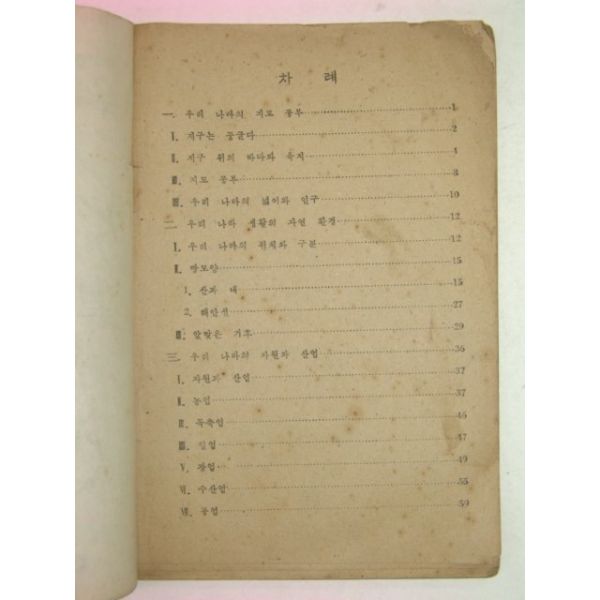 차 례
一. 우리 나라의 지도 공부 1
Ⅰ. 지구는 둥글다 2
Ⅱ. 지구 위의 바다와 육지 4
Ⅲ. 지도 공부 8
Ⅲ. 우리 나라의 넓이와 인구 10
二. 우리 나라 생활의 자연 환경 12
Ⅰ. 우리 나라의 위치와 구분 12
Ⅱ. 땅모양 15
1. 산과 내 15
2. 해안선 27
Ⅲ. 알맞은 기후 29
三. 우리 나라의 자원과 산업 36
Ⅰ. 자원과 산업 37
Ⅱ. 농업 37
Ⅲ. 목축업 46
Ⅲ. 임업 47
Ⅴ. 광업 49
Ⅵ. 수산업 55
Ⅶ. 공업 59